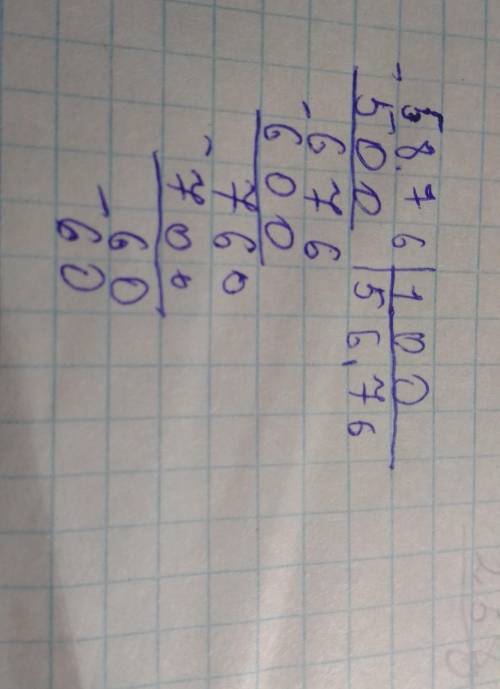 - 58.76 | 100
500 | 56,76
- 676
600
- 760
700
- 60
60